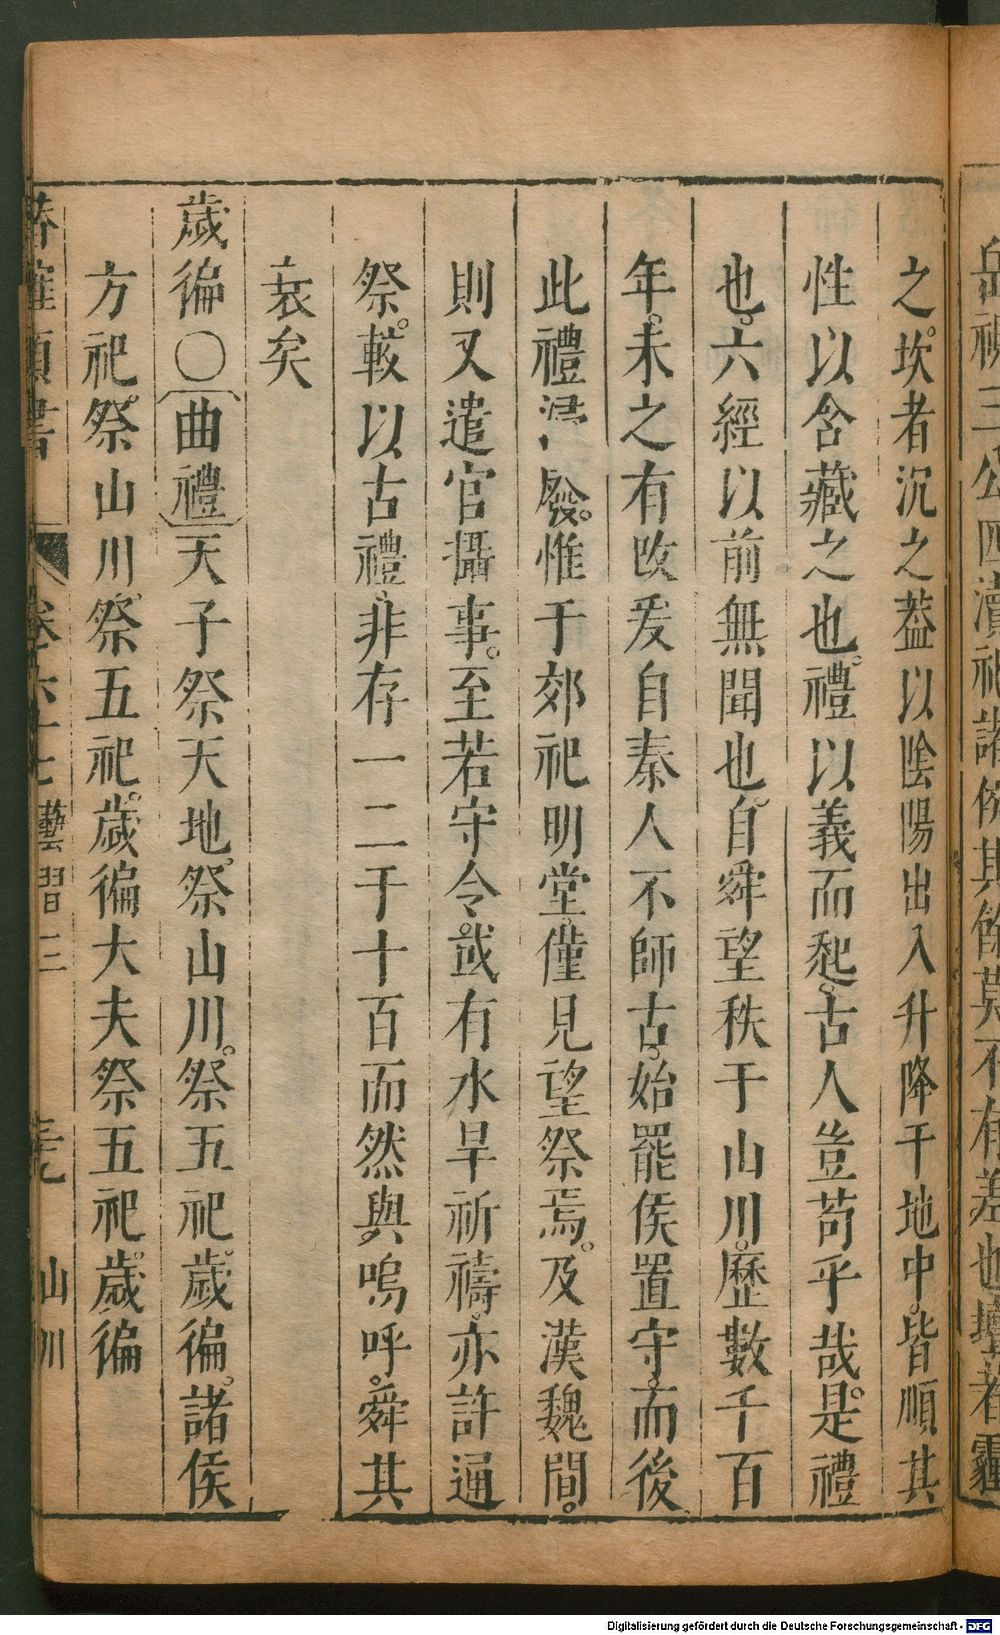 岳視三公四瀆視諸侯其餘莫不有差也壇者霾
之坎者沉之葢以陰陽出入升降于地中皆順其
性以含藏之也禮以義而起古人豈苟乎哉是禮
也六經以前無聞也自舜望秩于山川歷數千百
年未之有改爰自秦人不師古始罷侯置守而後
此禮𣹢廢惟于郊祀明堂僅見望祭焉及漢魏間
則又遣官攝事至若守令或有水旱祈禱亦許通
祭較以古禮非存一二于十百而然與嗚呼舜其
衰矣
歲徧〇曲禮天子祭天地祭山川祭五祀歲徧諸侯
方祀祭山川祭五祀歲徧大夫祭五祀歲徧
類書 卷六十七 藝習三 山川
Digitalisierung gefördert durch die Deutsche Forschungsgemeinschaft - DFG